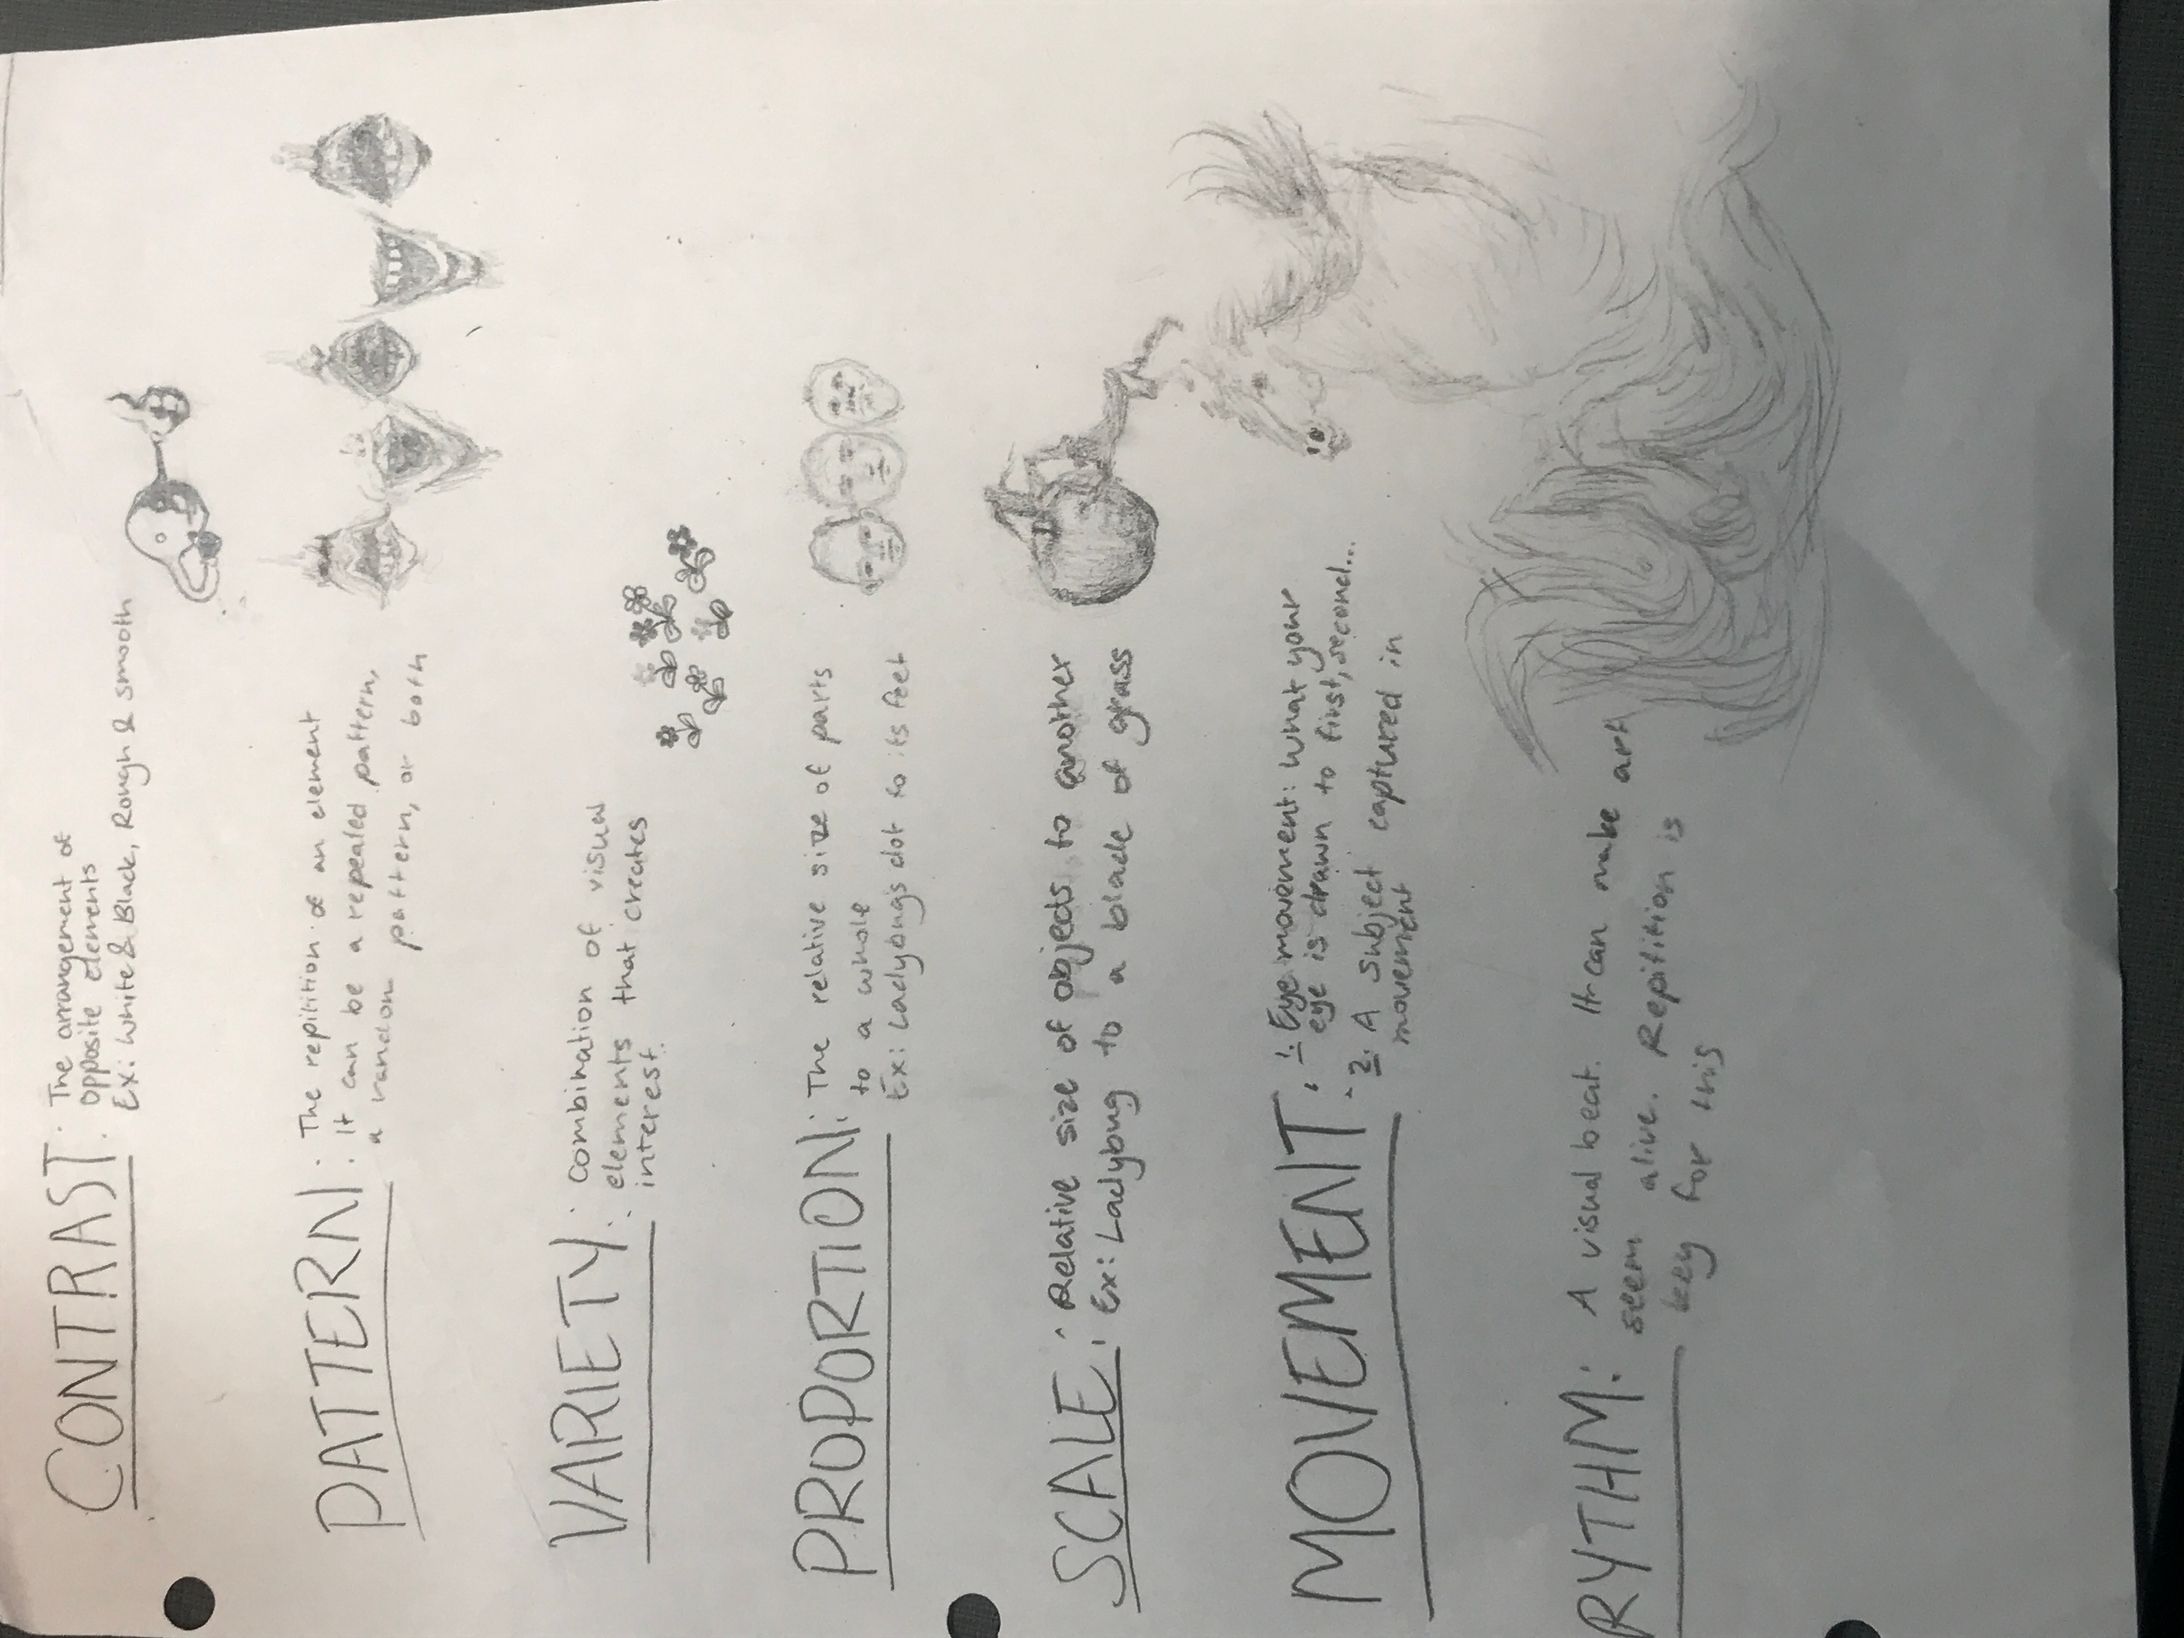 CONTRAST: The arrangement of
opposite elements
Ex: White & Black, Rough & smooth
PATTERN: The repitition of an element
It can be a repeated pattern,
a random pattern, or both
VARIETY: Combination of visual
elements that creates
interest.
PROPORTION: The relative size of parts
to a whole
Ex: Ladybugs dot to its feet
SCALE: Relative size of objects to another
Ex: Ladybug to a blade of grass
MOVEMENT: 1. Eye movement: what your
eye is drawn to first, second...
2. A subject captured in
movement
RYTHM: A visual beat. It can make art
seem alive. Repitition is
key for this